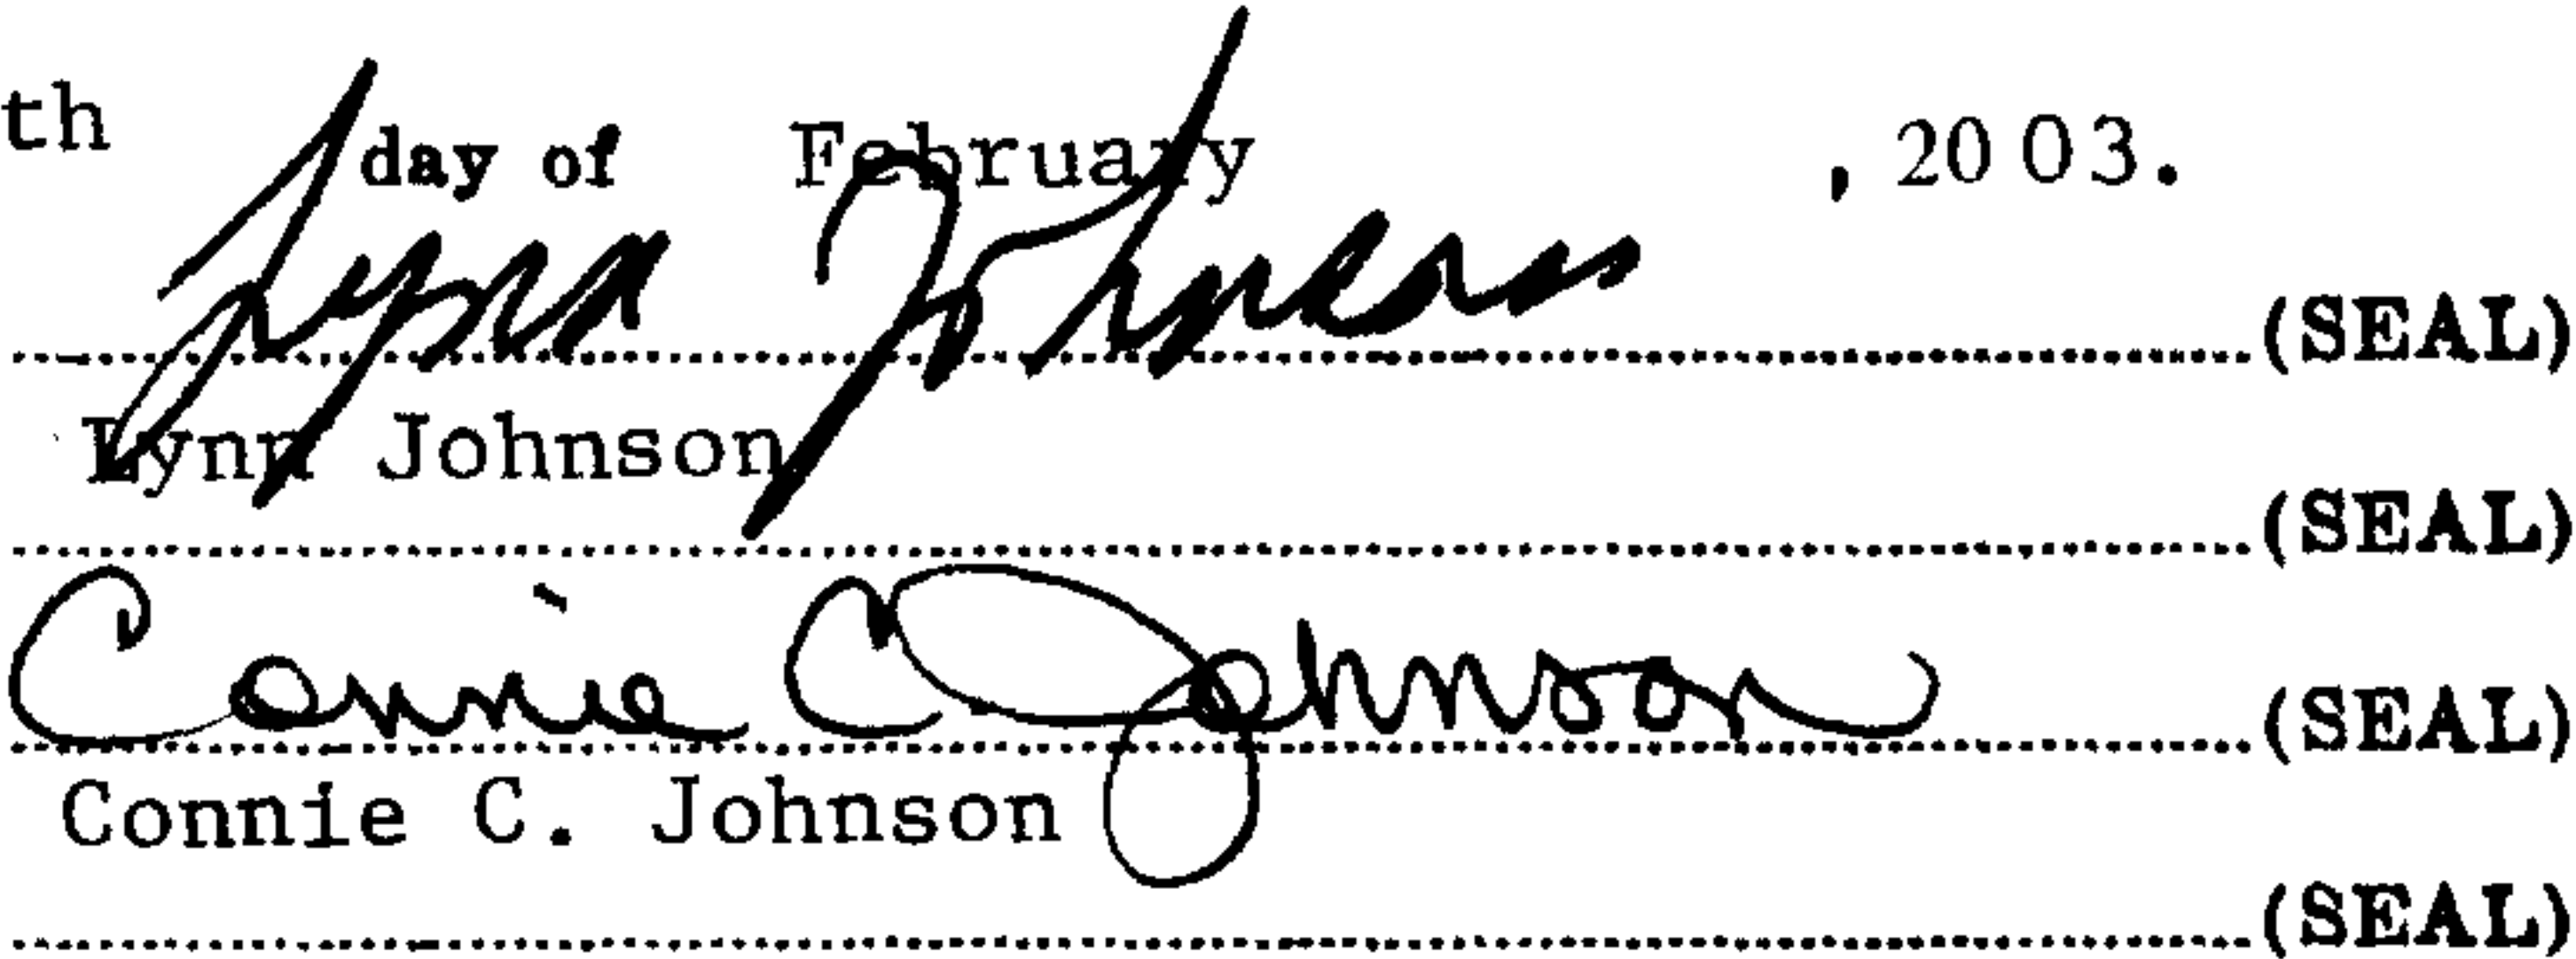 th day of February , 2003.
Lynn Johnson (SEAL)
Lynn Johnson
(SEAL)
Connie C Johnson (SEAL)
Connie C. Johnson
(SEAL)